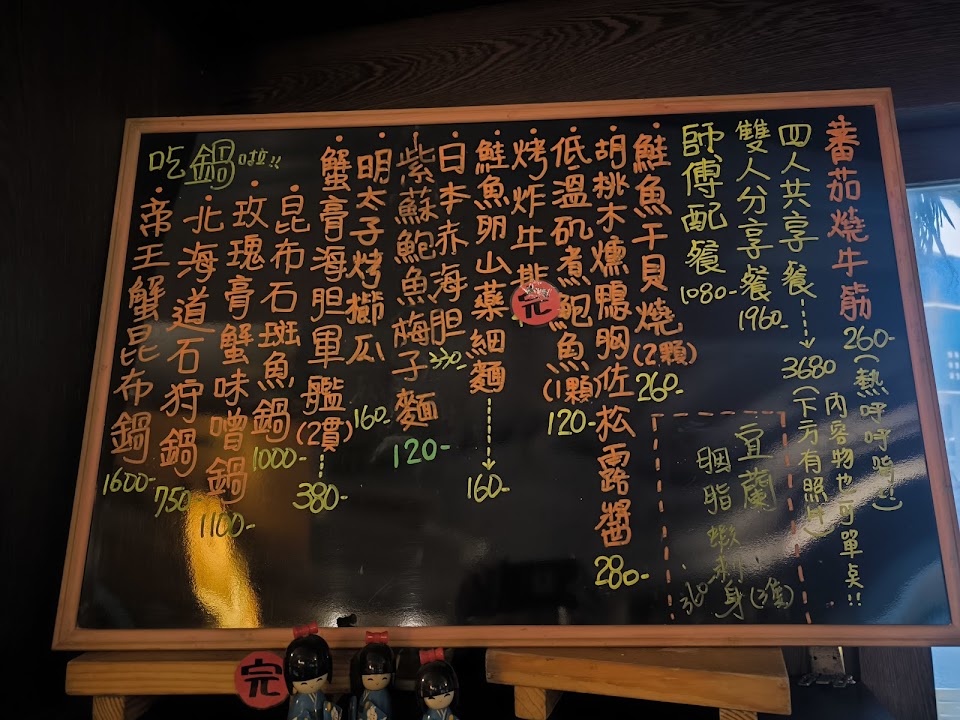 蕃茄燒牛筋 260-(熱呼呼
四人共享餐 3680(下方有照片)
內容物也可單奌!!
雙人分享餐 1960-
師傅配餐 1080-
宜蘭
胭脂蝦刺身 360-
・鮭魚干貝燒(2顆) 260-
・胡桃木燻鴨胸佐松露醬 280-
・低溫矶煮鮑魚(1顆) 120-
・烤炸牛排
完
・鮭魚卵山藥細麵 160-
・日本赤海胆 330-
・紫蘇鮑魚梅子麵 120-
・明太子烤櫛瓜 160-
・蟹膏海胆軍艦(2貫) 380-
吃鍋啦!!
・昆布石斑魚鍋 1000-
・玫瑰膏蟹味噌鍋 1100-
・北海道石狩鍋 750-
・帝王蟹昆布鍋 1600-
完